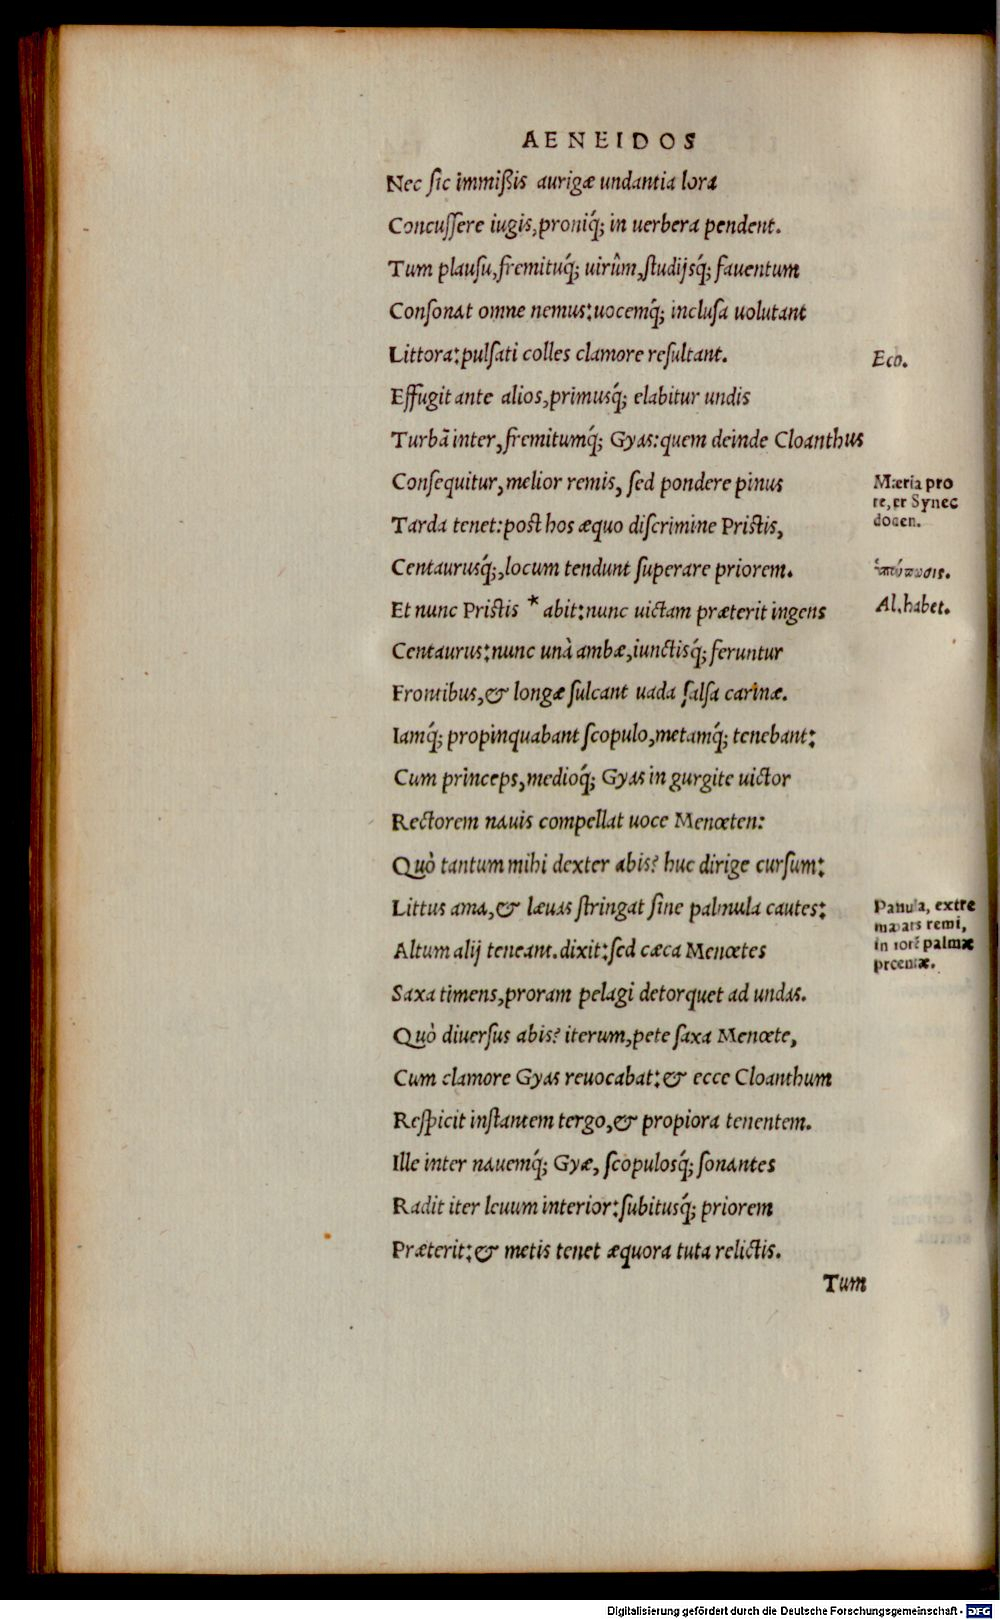 AENEIDOS
Nec sic immißis aurigæ undantia lora
Concussere iugis, proniq́; in uerbera pendent.
Tum plausu, fremituq́; uirûm, studijsq́; fauentum
Consonat omne nemus: uocemq́; inclusa uolutant
Littora: pulsati colles clamore resultant.
Eco.
Effugit ante alios, primusq́; elabitur undis
Turbā inter, fremitumq́; Gyas: quem deinde Cloanthus
Consequitur, melior remis, sed pondere pinus
Mæria pro
re, er Synec
docen.
Tarda tenet: post hos æquo discrimine Pristis,
Centaurusq́;, locum tendunt superare priorem.
Et nunc Pristis * abit: nunc uictam præterit ingens
Al. habet.
Centaurus: nunc unà ambæ, iunctisq́; feruntur
Frontibus, & longæ sulcant uada salsa carinæ.
Iamq́; propinquabant scopulo, metamq́; tenebant:
Cum princeps, medioq́; Gyas in gurgite uictor
Rectorem nauis compellat uoce Menœten:
Quò tantum mihi dexter abis? huc dirige cursum:
Littus ama, & læuas stringat sine palmula cautes:
extre
remi,
in palmæ
Altum alij teneant. dixit: sed cæca Menœtes
Saxa timens, proram pelagi detorquet ad undas.
Quò diuersus abis? iterum, pete saxa Menœte,
Cum clamore Gyas reuocabat: & ecce Cloanthum
Respicit instantem tergo, & propiora tenentem.
Ille inter nauemq́; Gyæ, scopulosq́; sonantes
Radit iter leuum interior: subitusq́; priorem
Præterit: & metis tenet æquora tuta relictis.
Tum
Digitalisierung gefördert durch die Deutsche Forschungsgemeinschaft - DFG